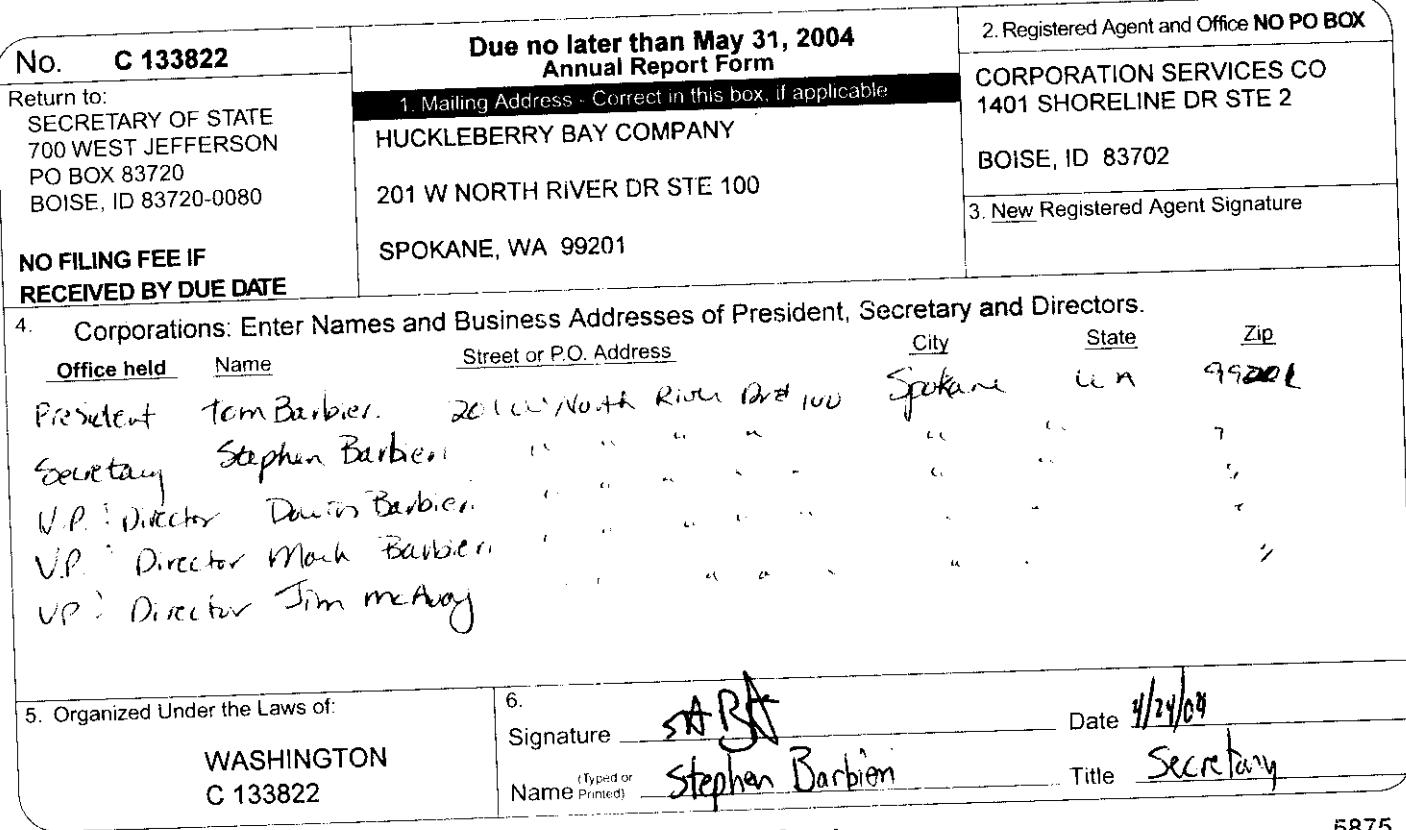 No. C 133822
Return to:
SECRETARY OF STATE
700 WEST JEFFERSON
PO BOX 83720
BOISE, ID 83720-0080
NO FILING FEE IF
RECEIVED BY DUE DATE
Due no later than May 31, 2004
Annual Report Form
1. Mailing Address - Correct in this box, if applicable
HUCKLEBERRY BAY COMPANY
201 W NORTH RIVER DR STE 100
SPOKANE, WA 99201
2. Registered Agent and Office NO PO BOX
CORPORATION SERVICES CO
1401 SHORELINE DR STE 2
BOISE, ID 83702
3. New Registered Agent Signature
4. Corporations: Enter Names and Business Addresses of President, Secretary and Directors.
Office held Name Street or P.O. Address City State Zip
President Tom Barbieri 201 W North River Dr # 100 Spokane WA 99201
Secretary Stephen Barbieri " " " " " " "
V.P. : Director Barbieri " " " " " " "
V.P. : Director Barbieri " " " " " " "
VP : Director Jim McAvoy " " " " " "
5. Organized Under the Laws of:
WASHINGTON
C 133822
6.
Signature Date 4/24/04
Name (Typed or Printed) Stephen Barbieri Title Secretary
5875